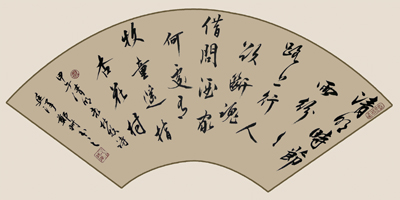 清明時節
雨紛々
路上行人
欲斷魂
借問酒家
何處有
牧童遙指
杏花村
甲午清明